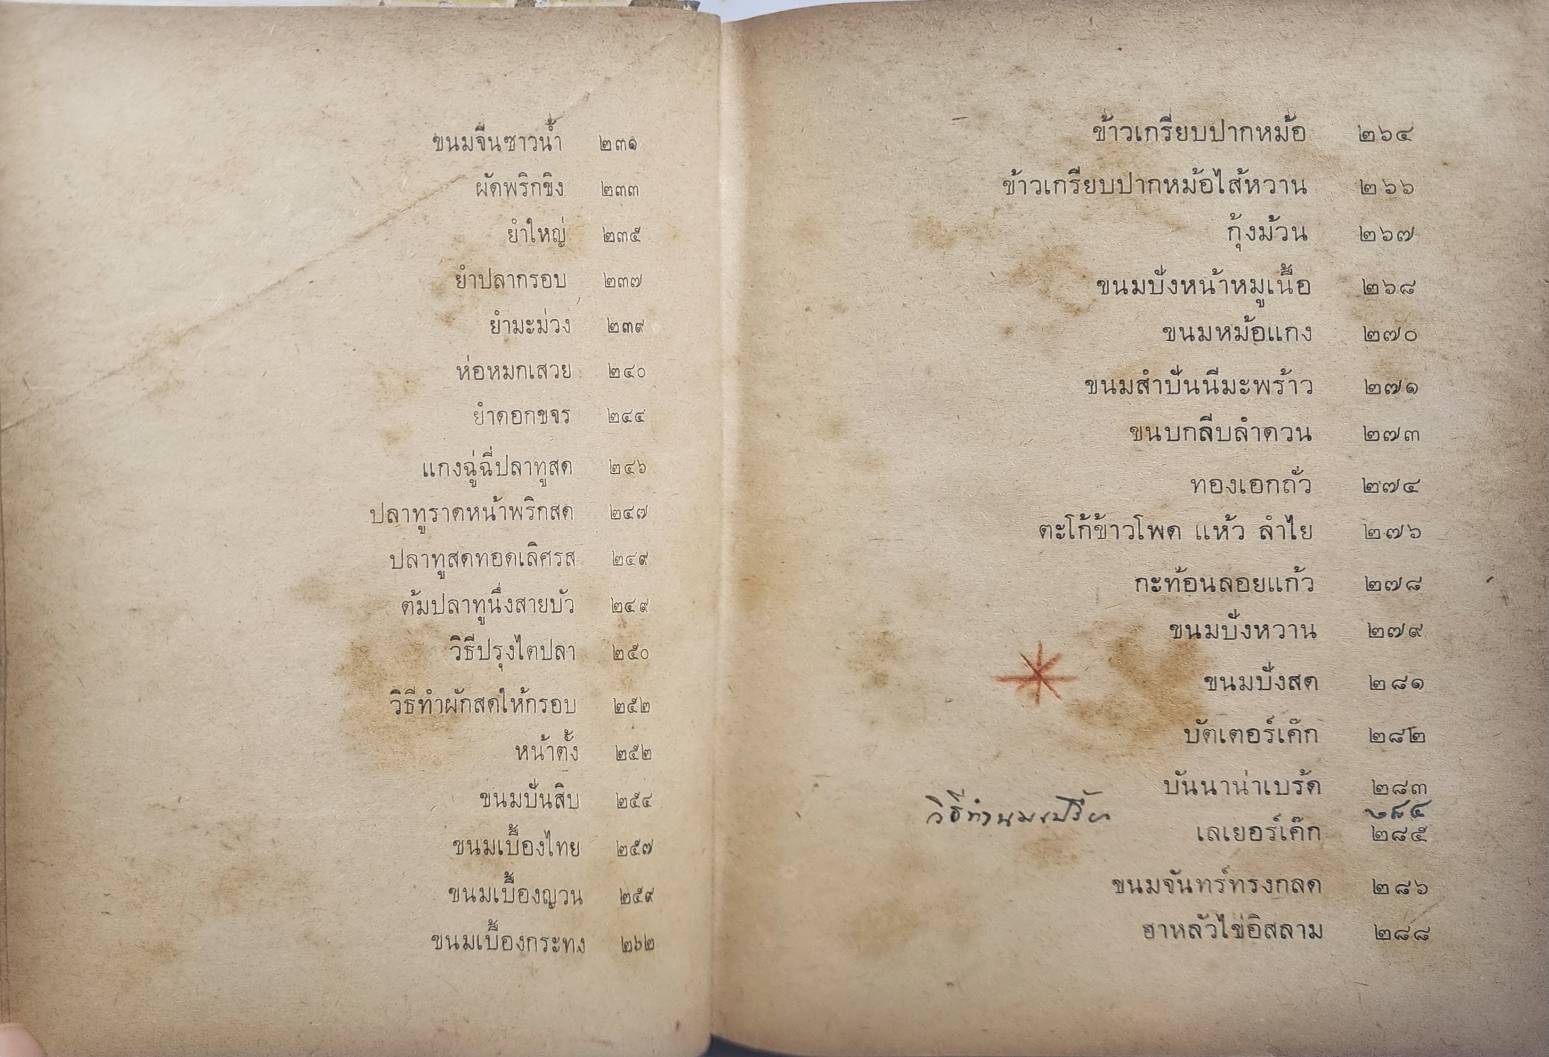 ขนมจีนซาวน้ำ ๒๓๑
ผัดพริกขิง ๒๓๓
ยำใหญ่ ๒๓๕
ยำปลากรอบ ๒๓๗
ยำมะม่วง ๒๓๙
ห่อหมกเสวย ๒๔๐
ยำดอกขจร ๒๔๔
แกงฉู่ฉี่ปลาทูสด ๒๔๖
ปลาทูราดหน้าพริกสด ๒๔๗
ปลาทูสดทอดเลิศรส ๒๔๙
ต้มปลาทูนึ่งสายบัว ๒๔๙
วิธีปรุงไตปลา ๒๕๐
วิธีทำผักสดให้กรอบ ๒๕๒
หน้าตั้ง ๒๕๒
ขนมปั้นสิบ ๒๕๔
ขนมเบื้องไทย ๒๕๗
ขนมเบื้องญวน ๒๕๙
ขนมเบื้องกระทง ๒๖๒
ข้าวเกรียบปากหม้อ ๒๖๔
ข้าวเกรียบปากหม้อไส้หวาน ๒๖๖
กุ้งม้วน ๒๖๗
ขนมปังหน้าหมูเนื้อ ๒๖๘
ขนมหม้อแกง ๒๗๐
ขนมสำปันนีมะพร้าว ๒๗๑
ขนบกลีบลำดวน ๒๗๓
ทองเอกถั่ว ๒๗๔
ตะโก้ข้าวโพด แห้ว ลำไย ๒๗๖
กะท้อนลอยแก้ว ๒๗๘
ขนมปังหวาน ๒๗๙
ขนมปังสด ๒๘๑
บัตเตอร์เค๊ก ๒๘๒
บันนาน่าเบรัด ๒๘๓
วิธีทำนมเปรี้ยว ๒๘๔
เลเยอร์เค๊ก ๒๘๕
ขนมจันทร์ทรงกลด ๒๘๖
ฮาหลัวไข่อิสลาม ๒๘๘